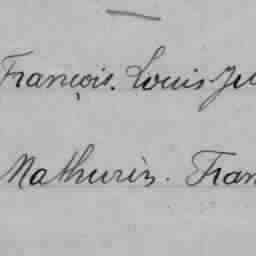 François. Louis. Ju
Mathurin. Fran